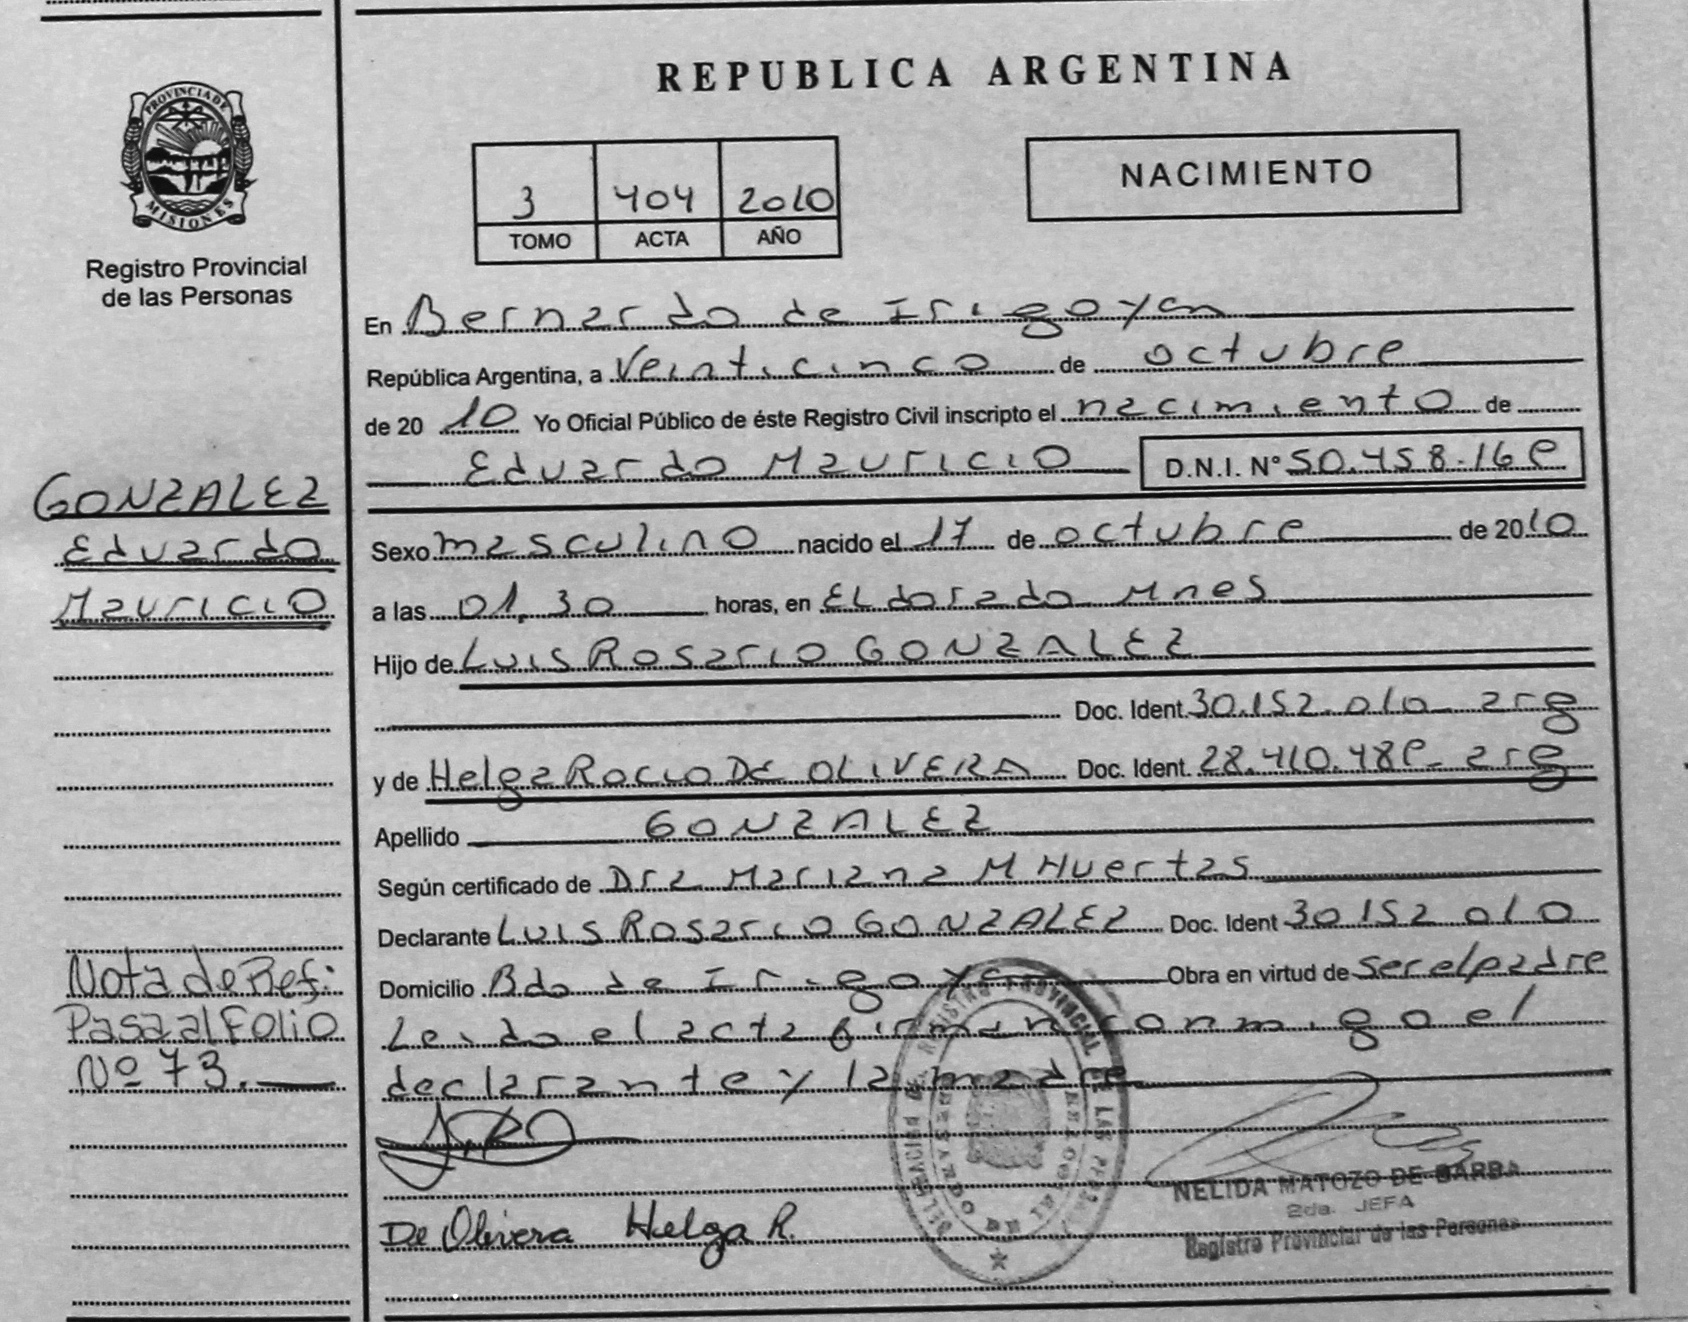 REPUBLICA ARGENTINA
PROVINCIA DE
MISIONES
Registro Provincial
de las Personas
3 404 2010
TOMO ACTA AÑO
NACIMIENTO
En Bernardo de Irigoyen
República Argentina, a Veinticinco de octubre
de 20 10 Yo Oficial Público de éste Registro Civil inscripto el nacimiento de
Eduardo Mauricio D.N.I. N° 50.458.16
GONZALEZ
Eduardo
Mauricio
Sexo masculino nacido el 17 de octubre de 2010
a las 01,30 horas, en ELdorado Mnes
Hijo de LUIS Rosario GONZALEZ
Doc. Ident. 30.152.010 arg
y de Helga Rocio DE OLIVERA Doc. Ident. 28.410.48 arg
Apellido GONZALEZ
Según certificado de Dra Mariana M Huertas
Declarante LUIS Rosario GONZALEZ Doc. Ident 30 152 010
Domicilio Bdo de Irigoyen Obra en virtud de ser el padre
Leido el acta firman conmigo el
declarante y la madre
Nota de Ref:
Pasa al Folio
Nº 73.
De Olivera Helga R.
DELEGACION REGISTRO PROVINCIAL DE LAS PERSONAS
BERNARDO
NELIDA MATOZO DE BARBA
2da. JEFA
Registro Provincial de las Personas